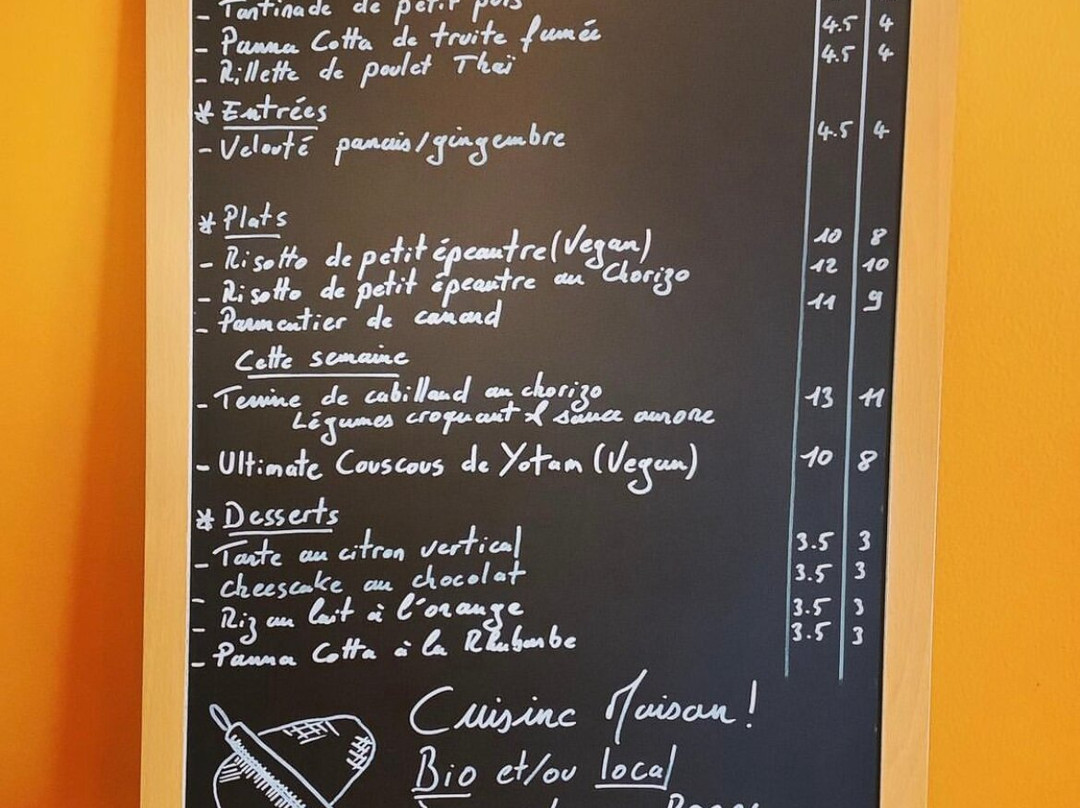 - Tartinade de petit pois
- Panna Cotta de truite fumée 4.5 4
- Rillette de poulet Thaï 4.5 4
* Entrées
- Velouté panais/gingembre 4.5 4
* Plats
- Risotto de petit épeautre (Vegan) 10 8
- Risotto de petit épeautre au Chorizo 12 10
- Parmentier de canard 11 9
Cette semaine
- Terrine de cabillaud au chorizo 13 11
Légumes croquant & sauce aurore
- Ultimate Couscous de Yotam (Vegan) 10 8
* Desserts
- Tarte au citron vertical 3.5 3
- cheescake au chocolat 3.5 3
- Riz au lait à l'orange 3.5 3
- Panna Cotta à la Rhubarbe 3.5 3
Cuisine Maison !
Bio et/ou local